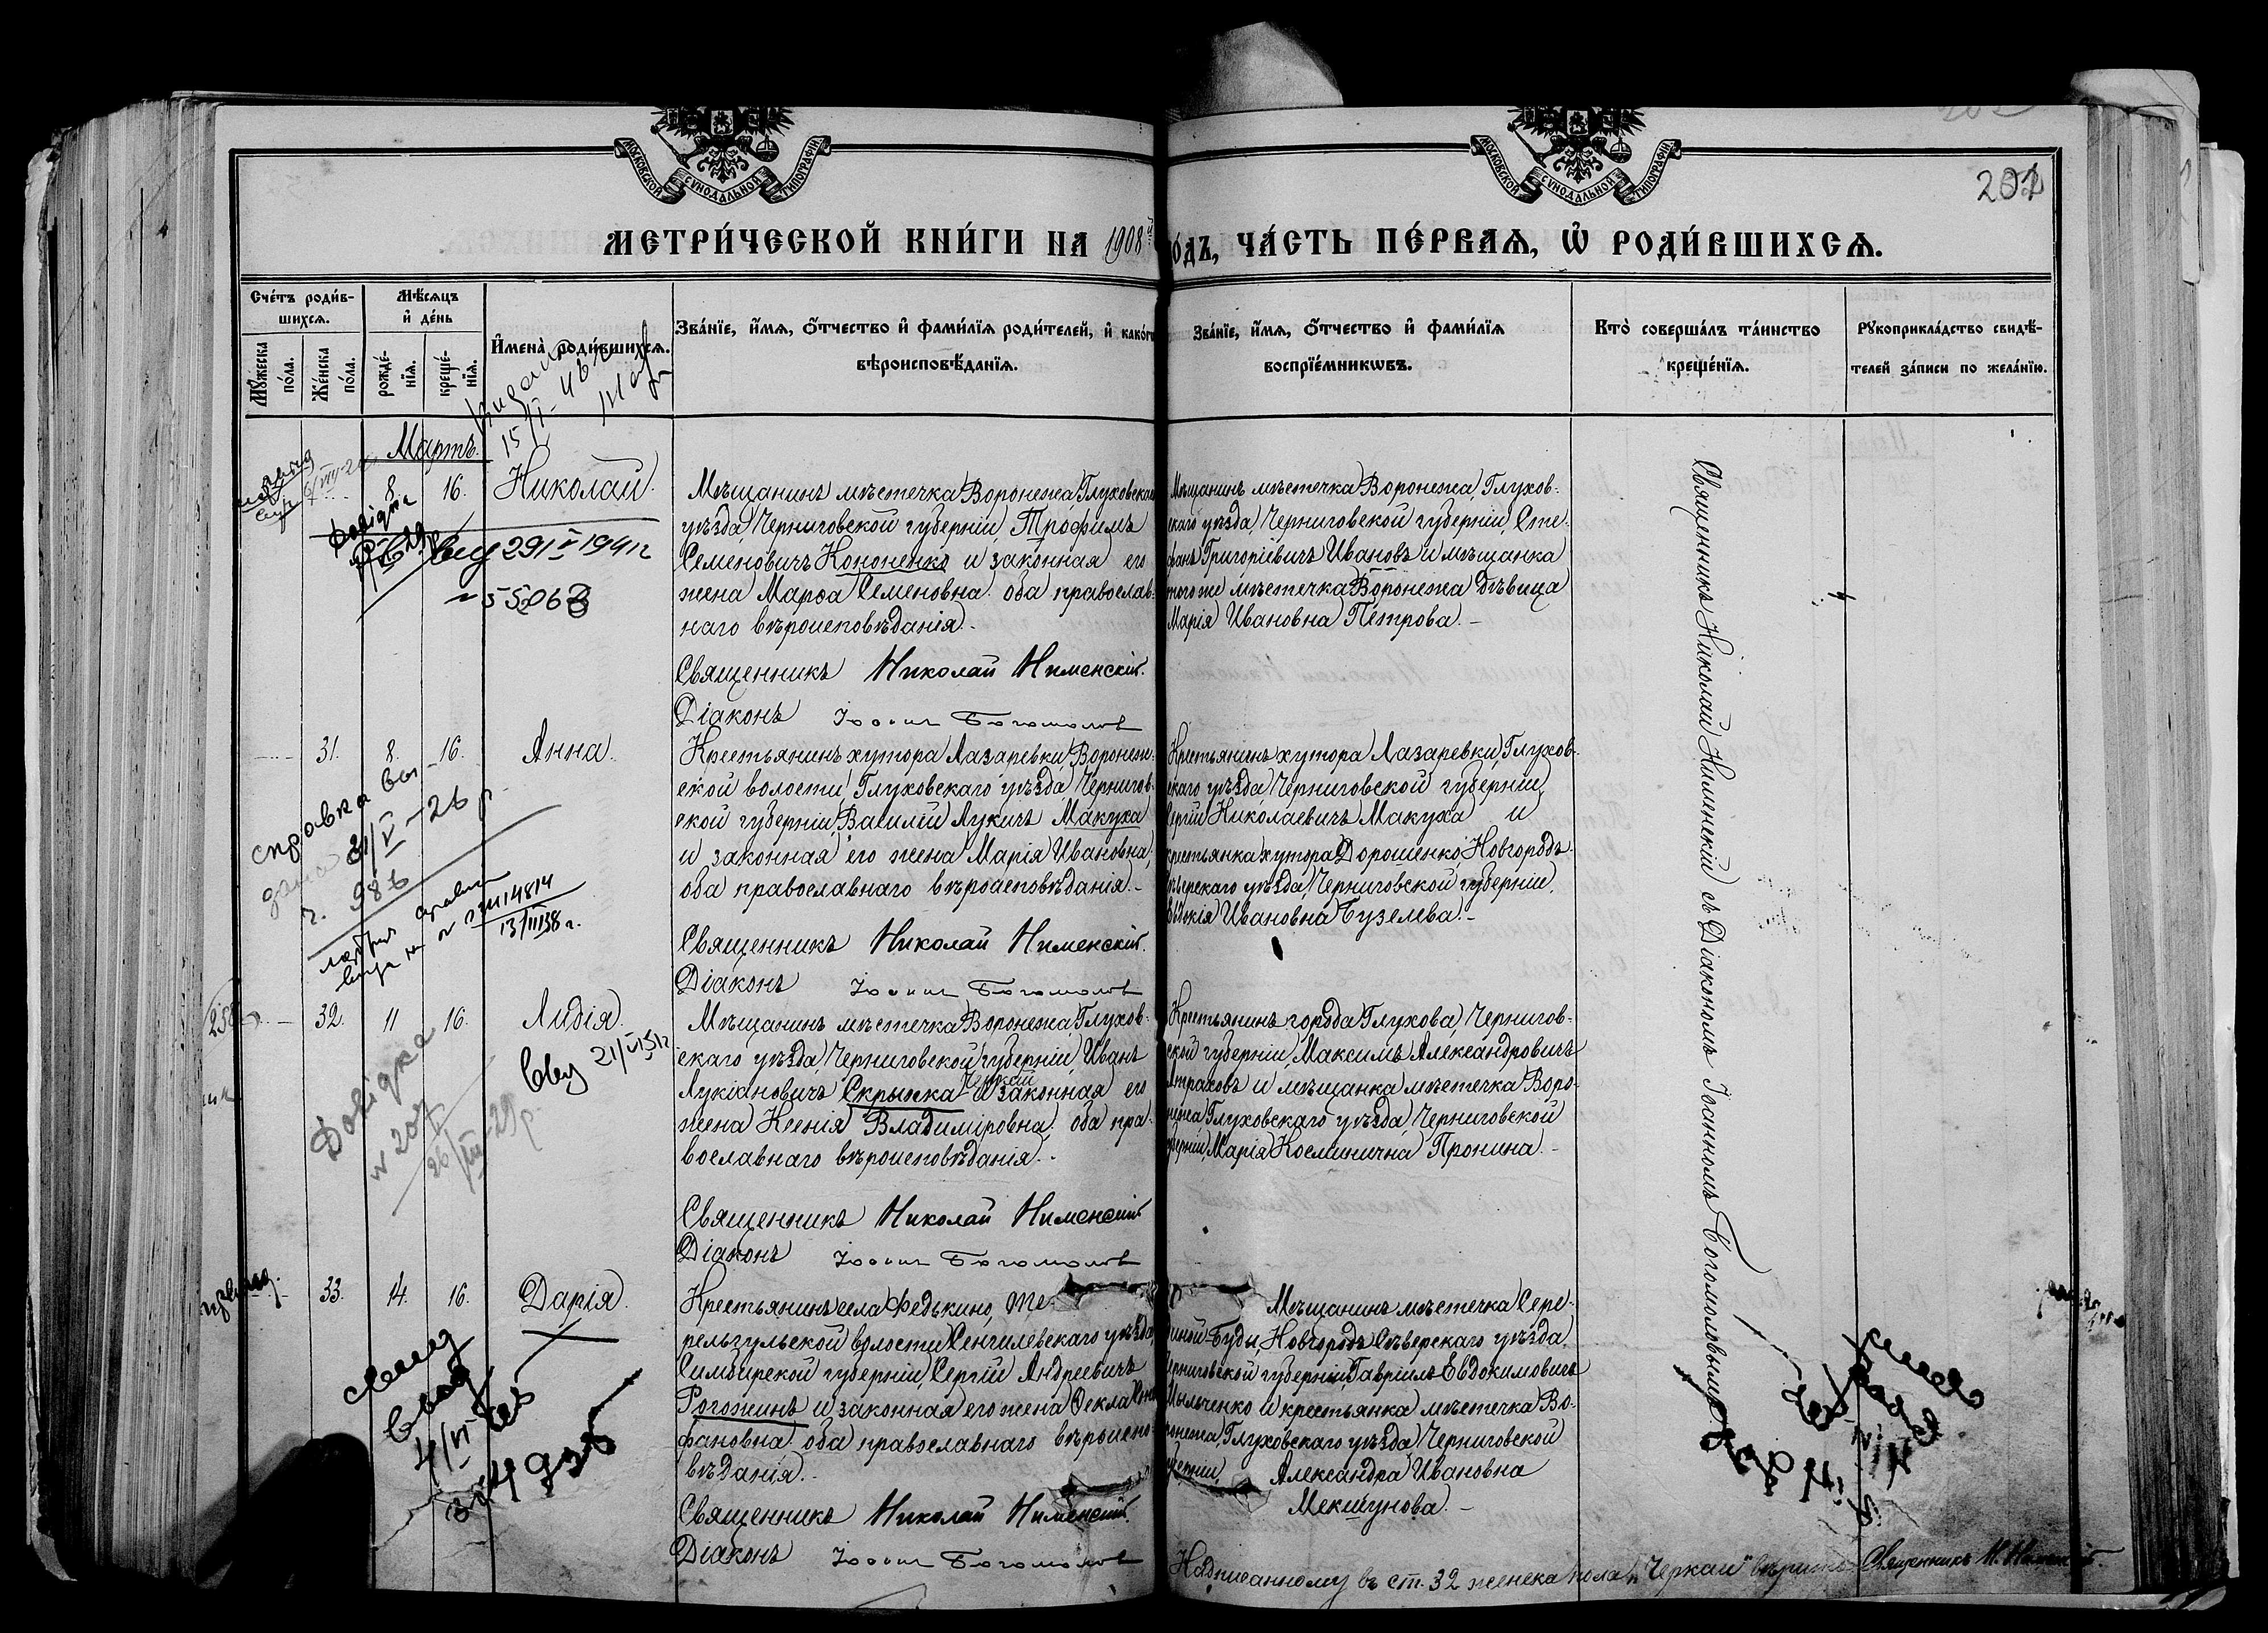 МОСКОВСКОЙ СУНОДАЛЬНОЙ ТИПОГРАФІИ
МОСКОВСКОЙ СУНОДАЛЬНОЙ ТИПОГРАФІИ
201
МЕТРИ́ЧЕСКОЙ КНИ́ГИ НА 1908й
О́ДЪ, ЧА́СТЬ ПЕ́РВАѦ, Ѡ҆ РОДИ́ВШИХСѦ.
Сче́тъ роди́в-
шихсѧ.
Мꙋ́жеска по́ла.
Же́нска по́ла.
Мѣ́сѧцъ
и҆ де́нь
рожде́-
нїѧ.
креще́-
нїѧ.
И҆мена̀ роди́вшихсѧ.
Зва́нїе, и҆́мѧ, ѻ҆́тчество и҆ фами́лїѧ роди́телей, и҆ како́гѡ
вѣроисповѣ́данїѧ.
Зва́нїе, и҆́мѧ, ѻ҆́тчество и҆ фами́лїѧ
воспрїе́мникѡвъ.
Кто̀ соверша́лъ та́инство
креще́нїѧ.
Рꙋкоприкла́дство свидѣ́-
телей за́писи по жела́нїю.
Мартъ.
8. 16. Николай.
29 I 1941 г
Мѣщанинъ мѣстечка Воронежа, Глуховскаго
уѣзда, Черниговской губерніи, Трофимъ
Семеновичъ Кононенко и законная его
жена Марѳа Семеновна, оба православ-
наго вѣроисповѣданія.-
Священникъ Николай Нименскій.
Діаконъ Іоаннъ Богомоловъ
Мѣщанинъ мѣстечка Воронежа, Глухов-
скаго уѣзда, Черниговской губерніи, Сте-
фанъ Григоріевичъ Ивановъ и мѣщанка
того же мѣстечка Воронежа дѣвица
Марія Ивановна Петрова.-
31. 8. 16. Анна.
справка вы
дана 21/V-26 р.
ч. 986
13/III 38 г.
Крестьянинъ хутора Лазаревки, Воронеж-
ской волости, Глуховскаго уѣзда, Чернигов-
ской губерніи, Василій Лукичъ Макуха
и законная его жена Марія Ивановна,
оба православнаго вѣроисповѣданія.-
Священникъ Николай Нименскій.
Діаконъ Іоаннъ Богомоловъ
Крестьянинъ хутора Лазаревки, Глухов-
скаго уѣзда, Черниговской губерніи,
Сергій Николаевичъ Макуха и
крестьянка хутора Дорошенко, Новгородъ-
сѣверскаго уѣзда, Черниговской губерніи,
Евдокія Ивановна Бузелева.-
32. 11 16. Лидія.
21/VI 51 г
Довідка
Мѣщанинъ мѣстечка Воронежа, Глухов-
скаго уѣзда, Черниговской губерніи, Иванъ
Черкай
Лукіановичъ Скрыпка и законная его
жена Ксенія Владиміровна, оба пра-
вославнаго вѣроисповѣданія.-
Священникъ Николай Нименскій
Діаконъ Іоаннъ Богомоловъ
Крестьянинъ города Глухова, Чернигов-
ской губерніи, Максимъ Александровичъ
Атраховъ и мѣщанка мѣстечка Воро-
нежа, Глуховскаго уѣзда, Черниговской
губерніи, Марія Косминична Пронина.-
33. 14. 16. Дарія.
Крестьянинъ села Федькино, Те-
рельгульской волости, Сенгилевскаго уѣзда,
Симбирской губерніи, Сергій Андреевичъ
Рогожинъ и законная его жена Ѳекла
фановна, оба православнаго вѣроиспо-
вѣданія.-
Священникъ Николай Нименскій.
Діаконъ Іоаннъ Богомоловъ
Мѣщанинъ мѣстечка Сере-
диной-Буды, Новгородъ Сѣверскаго уѣзда,
Черниговской губерніи, Гавріилъ Евдокимовичъ
Мыльченко и крестьянка мѣстечка Во-
ронежа, Глуховскаго уѣзда, Черниговской
губерніи, Александра Ивановна
Мекшунова.-
Священникъ Николай Нименскій съ Діакономъ Іоанномъ Богомоловымъ
Надписанному въ ст. 32 женска пола „Черкай" вѣрить Священникъ Н. Нименскій.